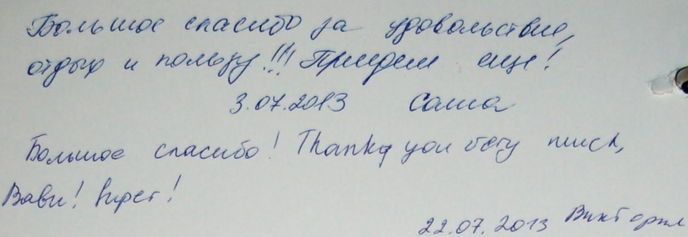 Большое спасибо за удовольствие,
отдых и пользу!!! Придем еще!
3.07.2013 Саша
Большое спасибо! Thanky you
22.07.2013 Виктория